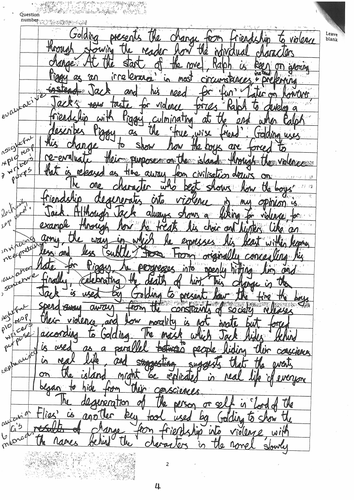 Question
number
Leave
blank
Golding presents the change from friendship to violence
through showing the reader how the individual characters
change. At the start of the novel, Ralph is keen on ignoring
Piggy as an 'irrelevance' in most circumstances, preferring
Jack and his need for 'fun'. Later on however,
Jack's taste for violence forces Ralph to develop a
friendship with Piggy, culminating at the end when Ralph
describes Piggy as the 'true, wise friend'. Golding uses
this change to show how the boys are forced to
re-evaluate their purposes on the island through the violence
that is released as time away from civilisation draws on.
The one character who best shows how the boys'
friendship degenerates into violence in my opinion is
Jack. Although Jack always shows a liking for violence, for
example through how he treats his choir and hunters like an
army, the way in which he expresses his beast within began
less and less subtle. From originally concealing his
hate for Piggy, he progresses into openly hitting him and
finally, celebrating the death of him. This change in the
Jack is used by Golding to present how the time the boys
spend away from the constraints of society releases
their violence, and how morality is not innate but forced
according to Golding. The mask which Jack hides behind
is used as a parallel people hiding their conscience
in real life and suggests that the events
on the island might be replicated in real life if everyone
began to hide from their consciences.
The degeneration of the person or self in 'Lord of the
Flies' is another key tool used by Golding to show the
change from friendship into violence, with
the names behind the characters in the novel slowly
2
4